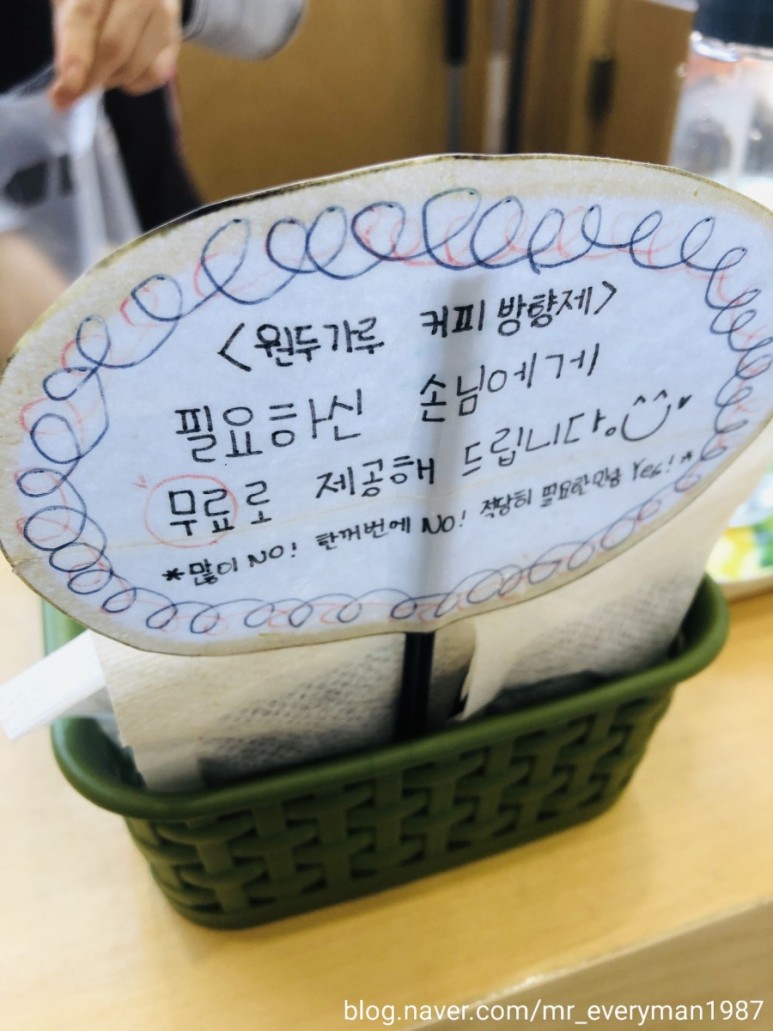 <원두가루 커피 방향제>
필요하신 손님에게
무료로 제공해 드립니다.
*많이 NO! 한꺼번에 NO! 적당히 필요한만큼 Yes!*
blog.naver.com/mr_everyman1987